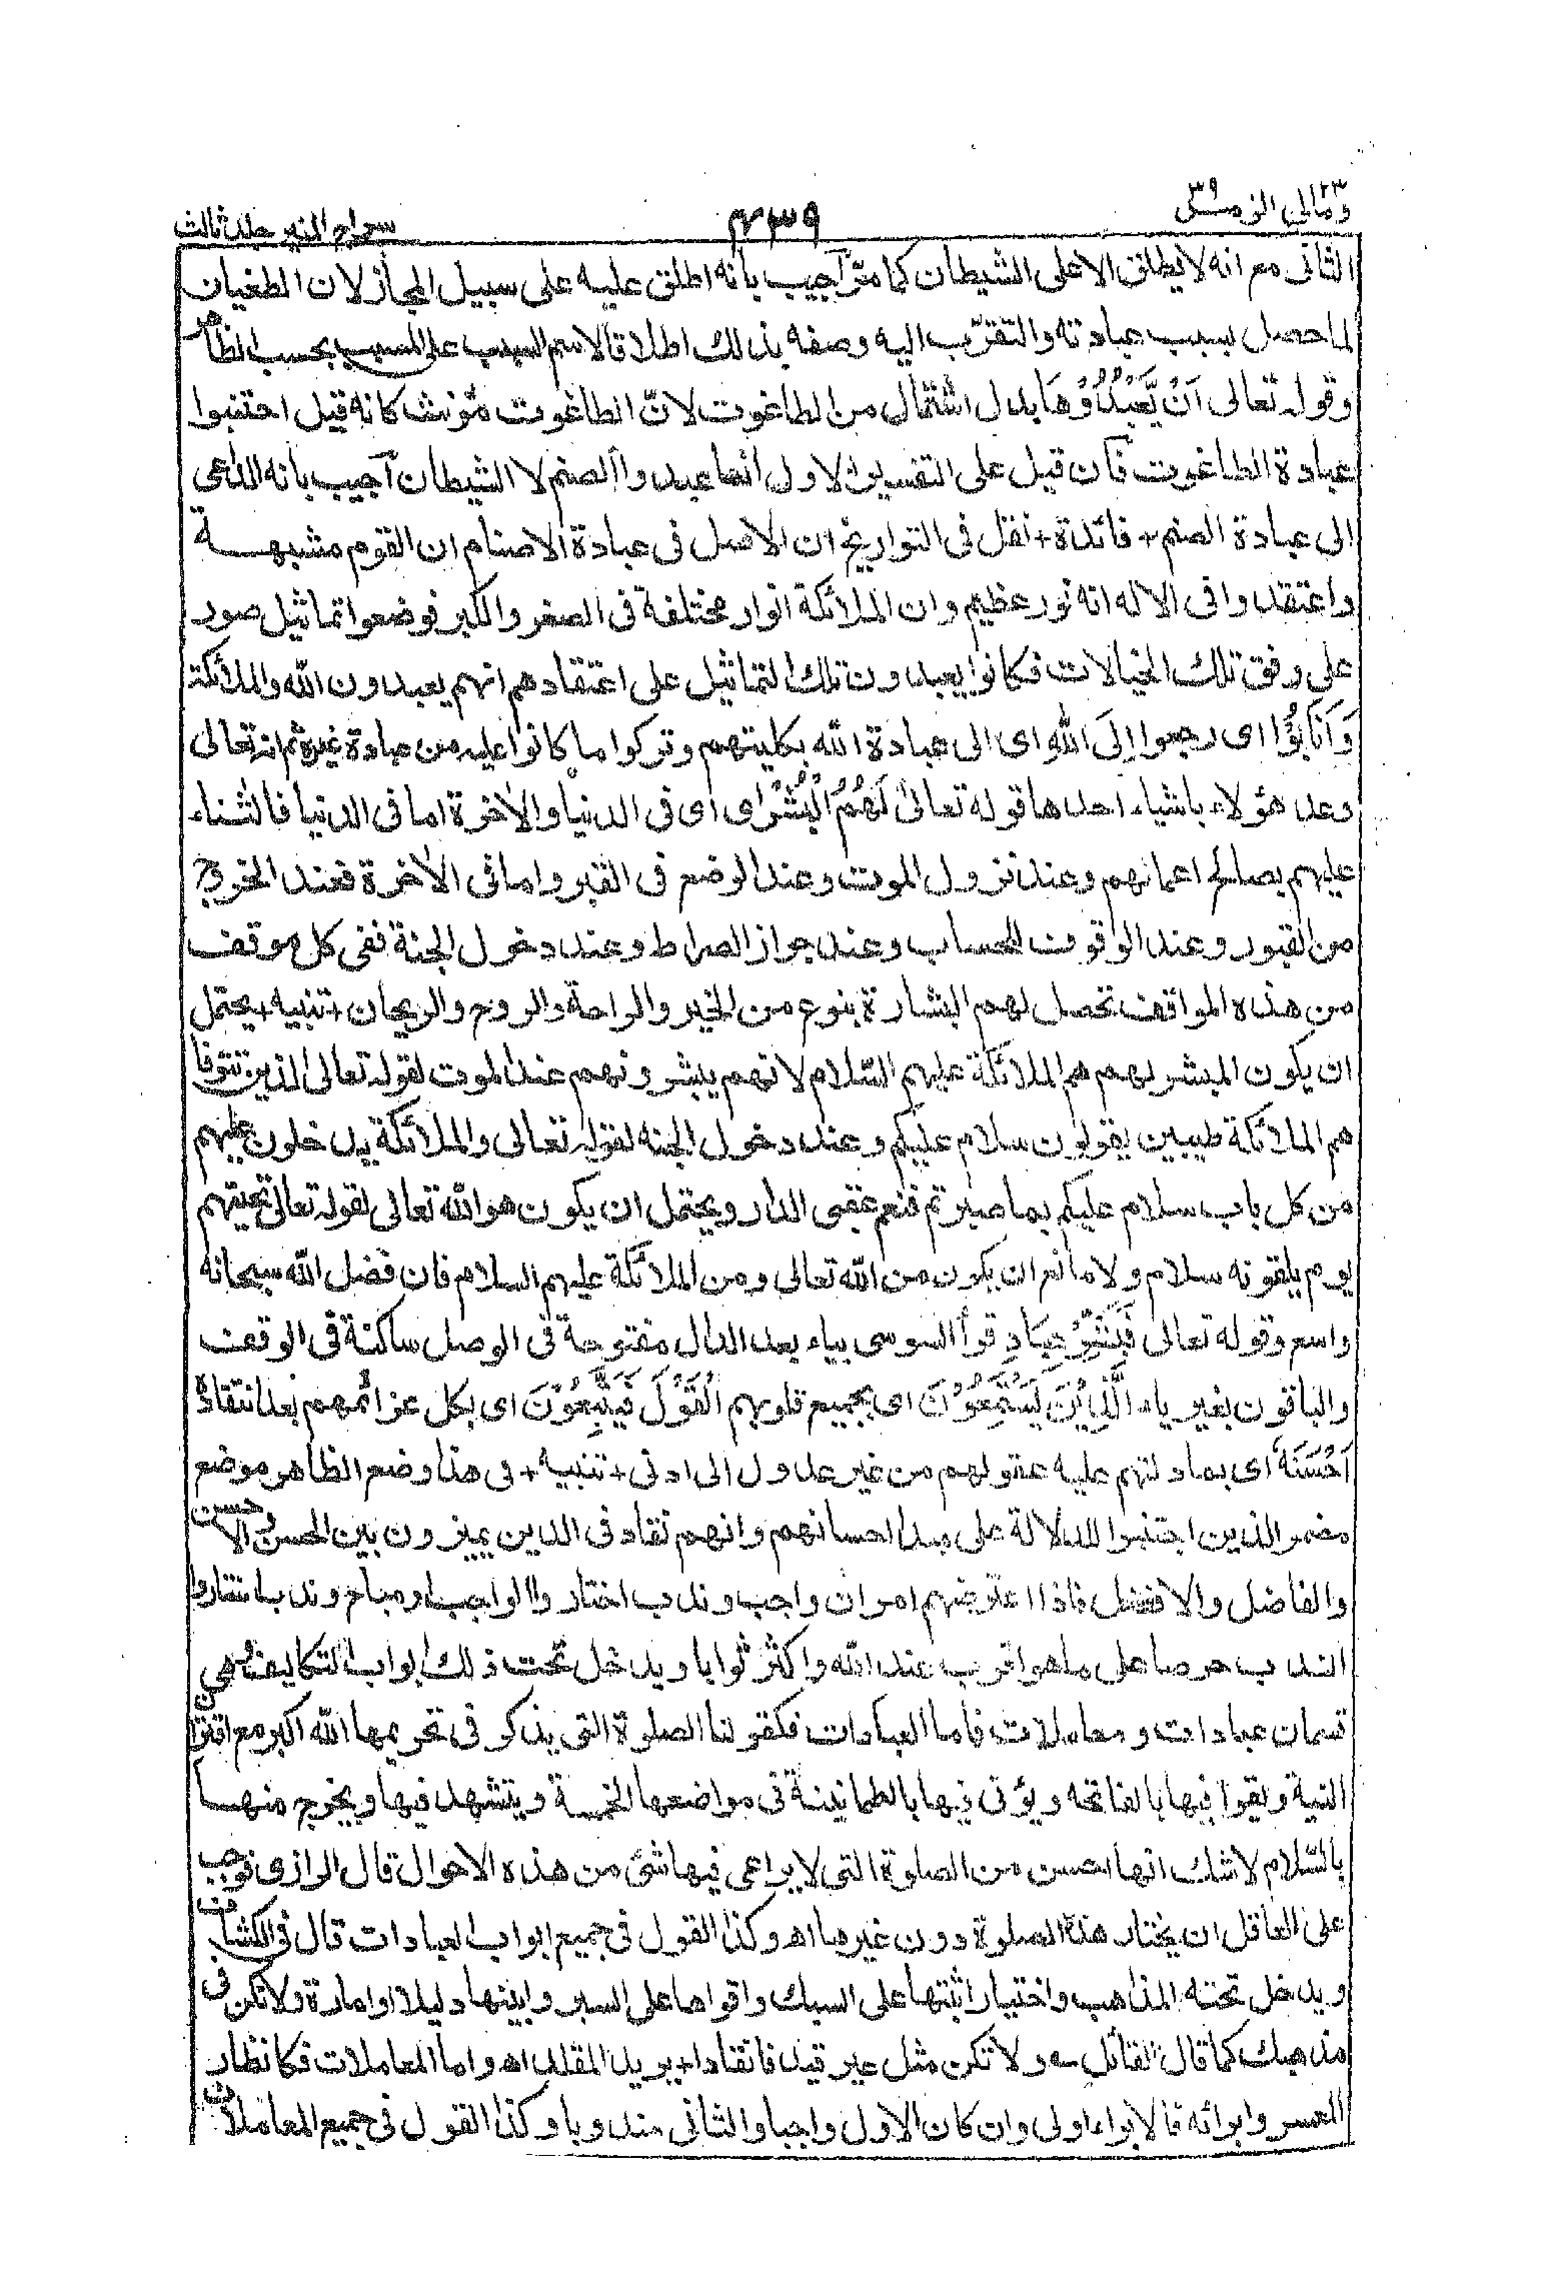 ومالی ٢٣ الزمر ٣٩
٤٣٩
سراج المنیر جلد ثالث
الثانی مع انه لا یطلق الا علی الشیطان کما مرّ اُجیب بانه اطلق علیه علی سبیل المجاز لان الطغیان
لما حصل بسبب عبادته والتقرّب الیه وصفه بذلك اطلاقا لاسم السبب علی المسبب بحسب الظاهر
وقوله تعالی اَنْ یَّعْبُدُوْهَا بدل اشتمال من الطاغوت لانّ الطاغوت مؤنث کانه قیل اجتنبوا
عبادة الطاغوت فان قیل علی التفسیر الاول انما عبدوا الصنم لا الشیطان اُجیب بانه الداعی
الی عبادة الصنم + فائدة + نقل فی التواریخ ان الاصل فی عبادة الاصنام ان القوم مشبهة
واعتقدوا فی الاله انه نور عظیم وان الملائکة انوار مختلفة فی الصغر والکبر فوضعوا تماثیل صور
علی وفق تلك الخیالات فکانوا یعبدون تلك التماثیل علی اعتقادهم انهم یعبدون الله والملائکة
وَاَنَابُوْا ای رجعوا اِلَی اللهِ ای الی عبادة الله بکلیتهم وترکوا ما کانوا علیه من عبادة غیره ثم انه تعالی
وعد هؤلاء باشیاء احدها قوله تعالیٰ لَهُمُ الْبُشْرٰی ای فی الدنیا والاٰخرة اما فی الدنیا فالثناء
علیهم بصالح اعمالهم وعند نزول الموت وعند الوضع فی القبر واما فی الاٰخرة فعند الخروج
من القبور وعند الوقوف للحساب وعند جواز الصراط وعند دخول الجنة ففی کل موقف
من هذه المواقف تحصل لهم البشارة بنوع من الخیر والراحة والروح والریحان + تنبیه + یحتمل
ان یکون المبشر لهم هم الملائکة علیهم السّلام لانهم یبشرونهم عند الموت لقوله تعالی الذین تتوفا
هم الملائکة طیبین یقولون سلام علیکم وعند دخول الجنة لقوله تعالی والملائکة یدخلون علیهم
من کل باب سلام علیکم بما صبرتم فنعم عقبی الدار ویحتمل ان یکون هو الله تعالی لقوله تعالی تحیتهم
یوم یلقونه سلام ولا مانع ان یکون من الله تعالی ومن الملائکة علیهم السلام فان فضل الله سبحانه
واسع وقوله تعالی فَبَشِّرْ عِبَادِ قرأ السوسی بیاء بعد الدال مفتوحة فی الوصل ساکنة فی الوقف
والباقون بغیر یاء الَّذِیْنَ یَسْتَمِعُوْنَ ای بجمیع قلوبهم الْقَوْلَ فَیَتَّبِعُوْنَ ای بکل عزائمهم بعد انتقاده
اَحْسَنَهٗ ای بما دلتهم علیه عقولهم من غیر عدول الی ادنی + تنبیه + فی هذا وضع الظاهر موضع
مضمر الذین اجتنبوا للدلالة علی مبدا احسانهم وانهم نقاد فی الدین یمیزون بین الحسن والاحسن
والفاضل والافضل فاذا اعترضهم امران واجب وندب اختاروا الواجب او مباح وندب اختاروا
الندب حرصا علی ما هو اقرب عند الله واکثر ثوابا ویدخل تحت ذلك ابواب التکالیف وهی
قسمان عبادات ومعاملات فاما العبادات فکقولنا الصلوة التی یذکر فی تحریمها الله اکبر مع اقتران
النیة ویقرا فیها بالفاتحه ویؤتی فیها بالطمانینة فی مواضعها الخمسة ویتشهد فیها ویخرج منها
بالسّلام لاشك انها احسن من الصلوة التی لا یراعی فیها شئ من هذه الاحوال قال الرازی فوجب
علی العاقل ان یختار هذه الصلوة دون غیرها اھ وکذا القول فی جمیع ابواب العبادات قال فی الکشاف
ویدخل تحته المذاهب واختیار اثبتها علی السبك واقواها علی السبر وابینها دلیلا او امارة ولا تکن فی
مذهبك کما قال القائل ؎ ولا تکن مثل عیر قید فانقادا + یرید المقلد اھ واما المعاملات فکانظار
المعسر وابرائه فالابراء اولی وان کان الاول واجبا والثانی مندوبا وکذا القول فی جمیع المعاملات